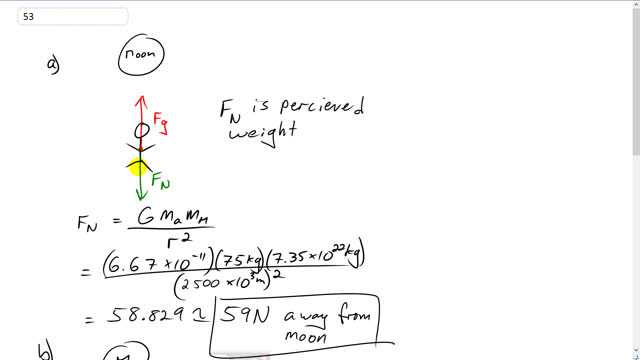 53
a)
moon
F_g
F_N is percieved
weight
F_N
F_N = G m_a m_M / r^2
= (6.67 × 10^-11)(75 kg)(7.35 × 10^22 kg) / (2500 × 10^3 m)^2
= 58.829 ≈ 59N away from
moon
b)